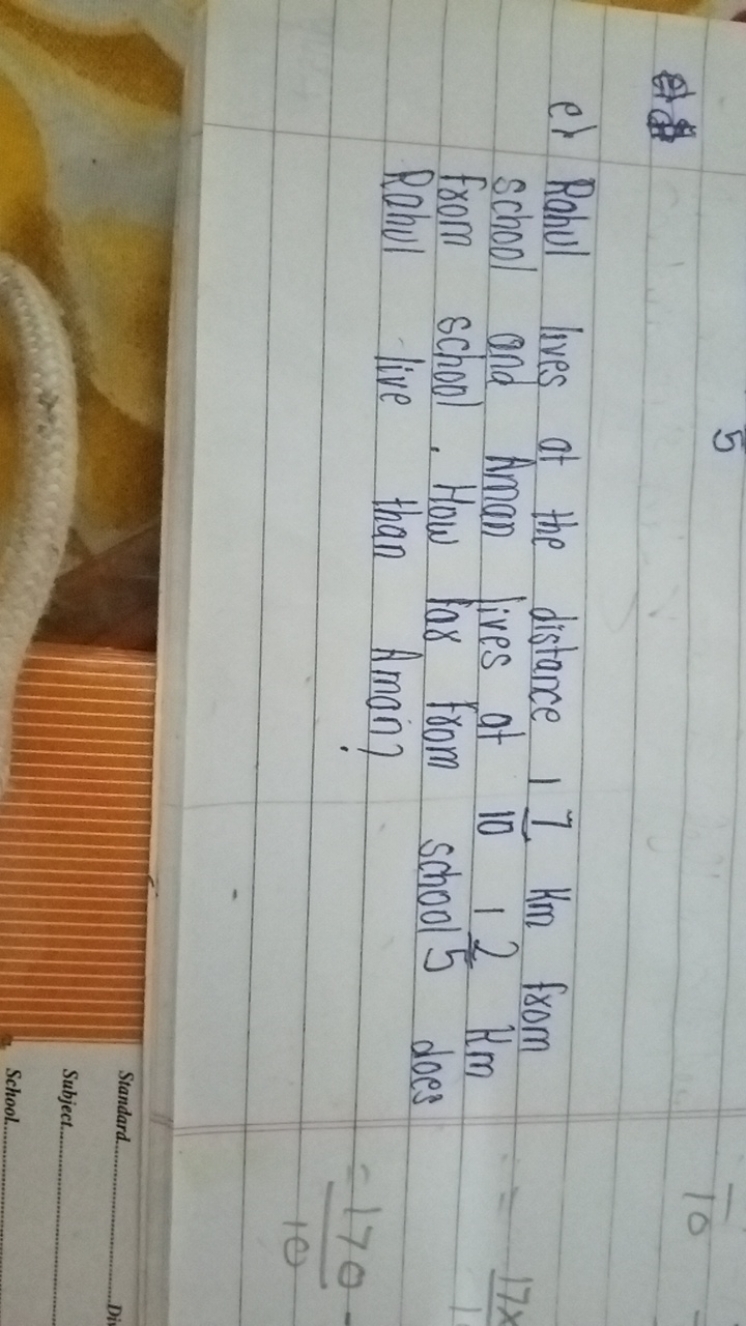 5
e) Rahul lives at the distance 1 7 km from
school and Aman lives at 10 1 2 km
from school. How far from school 5 does
Rahul live than Aman?
10
= 17x
= 170
10
Standard
Subject
School